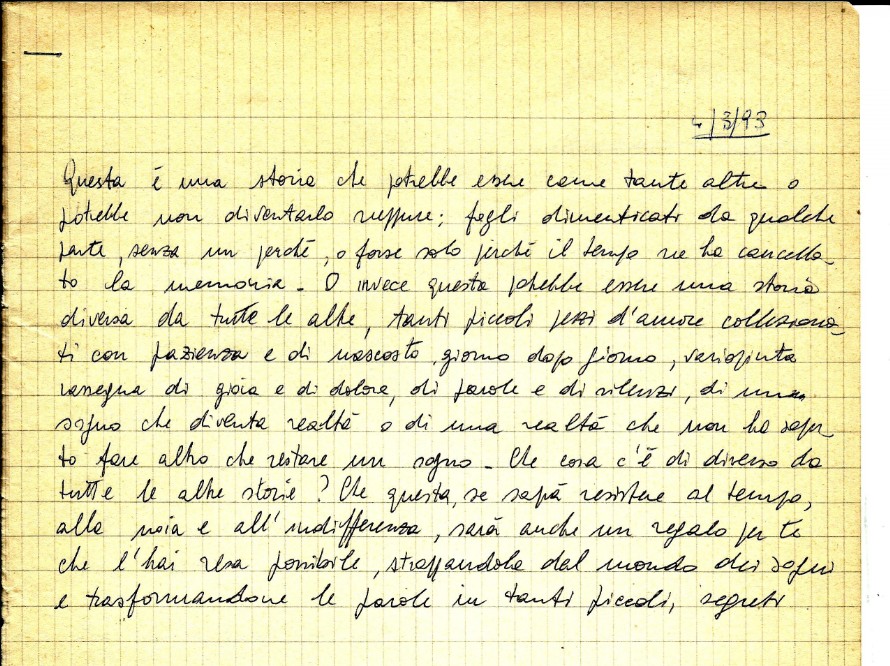 4/3/93
Questa è una storia che potrebbe essere come tante altre o
potrebbe non diventarlo neppure; fogli dimenticati da qualche
parte, senza un perché, o forse solo perché il tempo ne ha cancella-
to la memoria - O invece questa potrebbe essere una storia
diversa da tutte le altre, tanti piccoli pezzi d'amore colleziona-
ti con pazienza e di nascosto, giorno dopo giorno, variopinta
rassegna di gioia e di dolore, di parole e di silenzi, di un
sogno che diventa realtà o di una realtà che non ha sapu-
to fare altro che restare un sogno - Che cosa c'è di diverso da
tutte le altre storie? Che questa, se saprà resistere al tempo,
alla noia e all'indifferenza, sarà anche un regalo per te
che l'hai resa possibile, strappandola dal mondo dei sogni
e trasformandone le parole in tanti piccoli, segreti